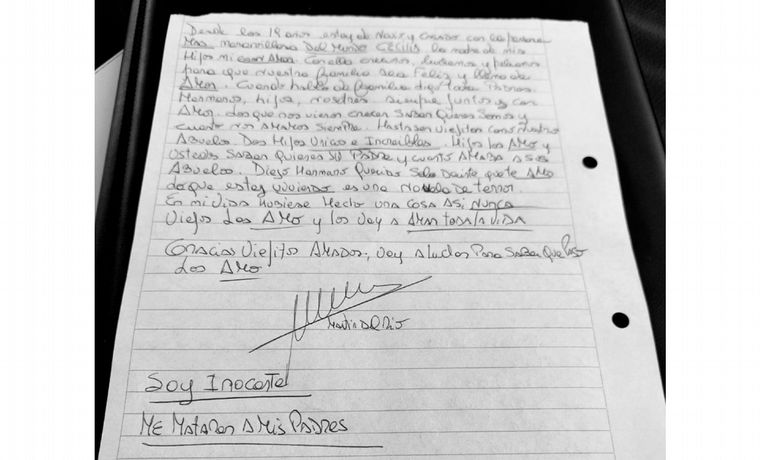 Desde los 18 años estoy de Novio y Casado con la persona
Mas maravillosa Del Mundo Cecilia la madre de mis
Hijos mi gran Amor. Con ella crecimos, luchamos y peleamos
para que nuestra familia sea Feliz y llena de
Amor. Cuando hablo de familia digo todo Padres
Hermano, hijos, nosotros siempre juntos y con
Amor. Los que nos vieron crecer saben Quienes Somos y
cuanto nos Amamos siempre. Hasta ser Viejitos como nuestros
Abuelos. Dos Hijos Unicos e Increibles. Hijos los Amo y
Ustedes Saben Quien es su Padre y cuanto AMABA A SUS
Abuelos. Diego Hermano Querido Solo Decirte que te AMO
lo que estoy viviendo es una Novela De terror.
En mi vida Hubiese Hecho una cosa Asi Nunca
Viejos Los AMO y los voy a AMAR toda la VIDA
Gracias Viejitos Amados, Voy a luchar Para Saber Que Paso
Los AMO
Martin Del Rio
Soy Inocente
ME MATARON A MIS PADRES